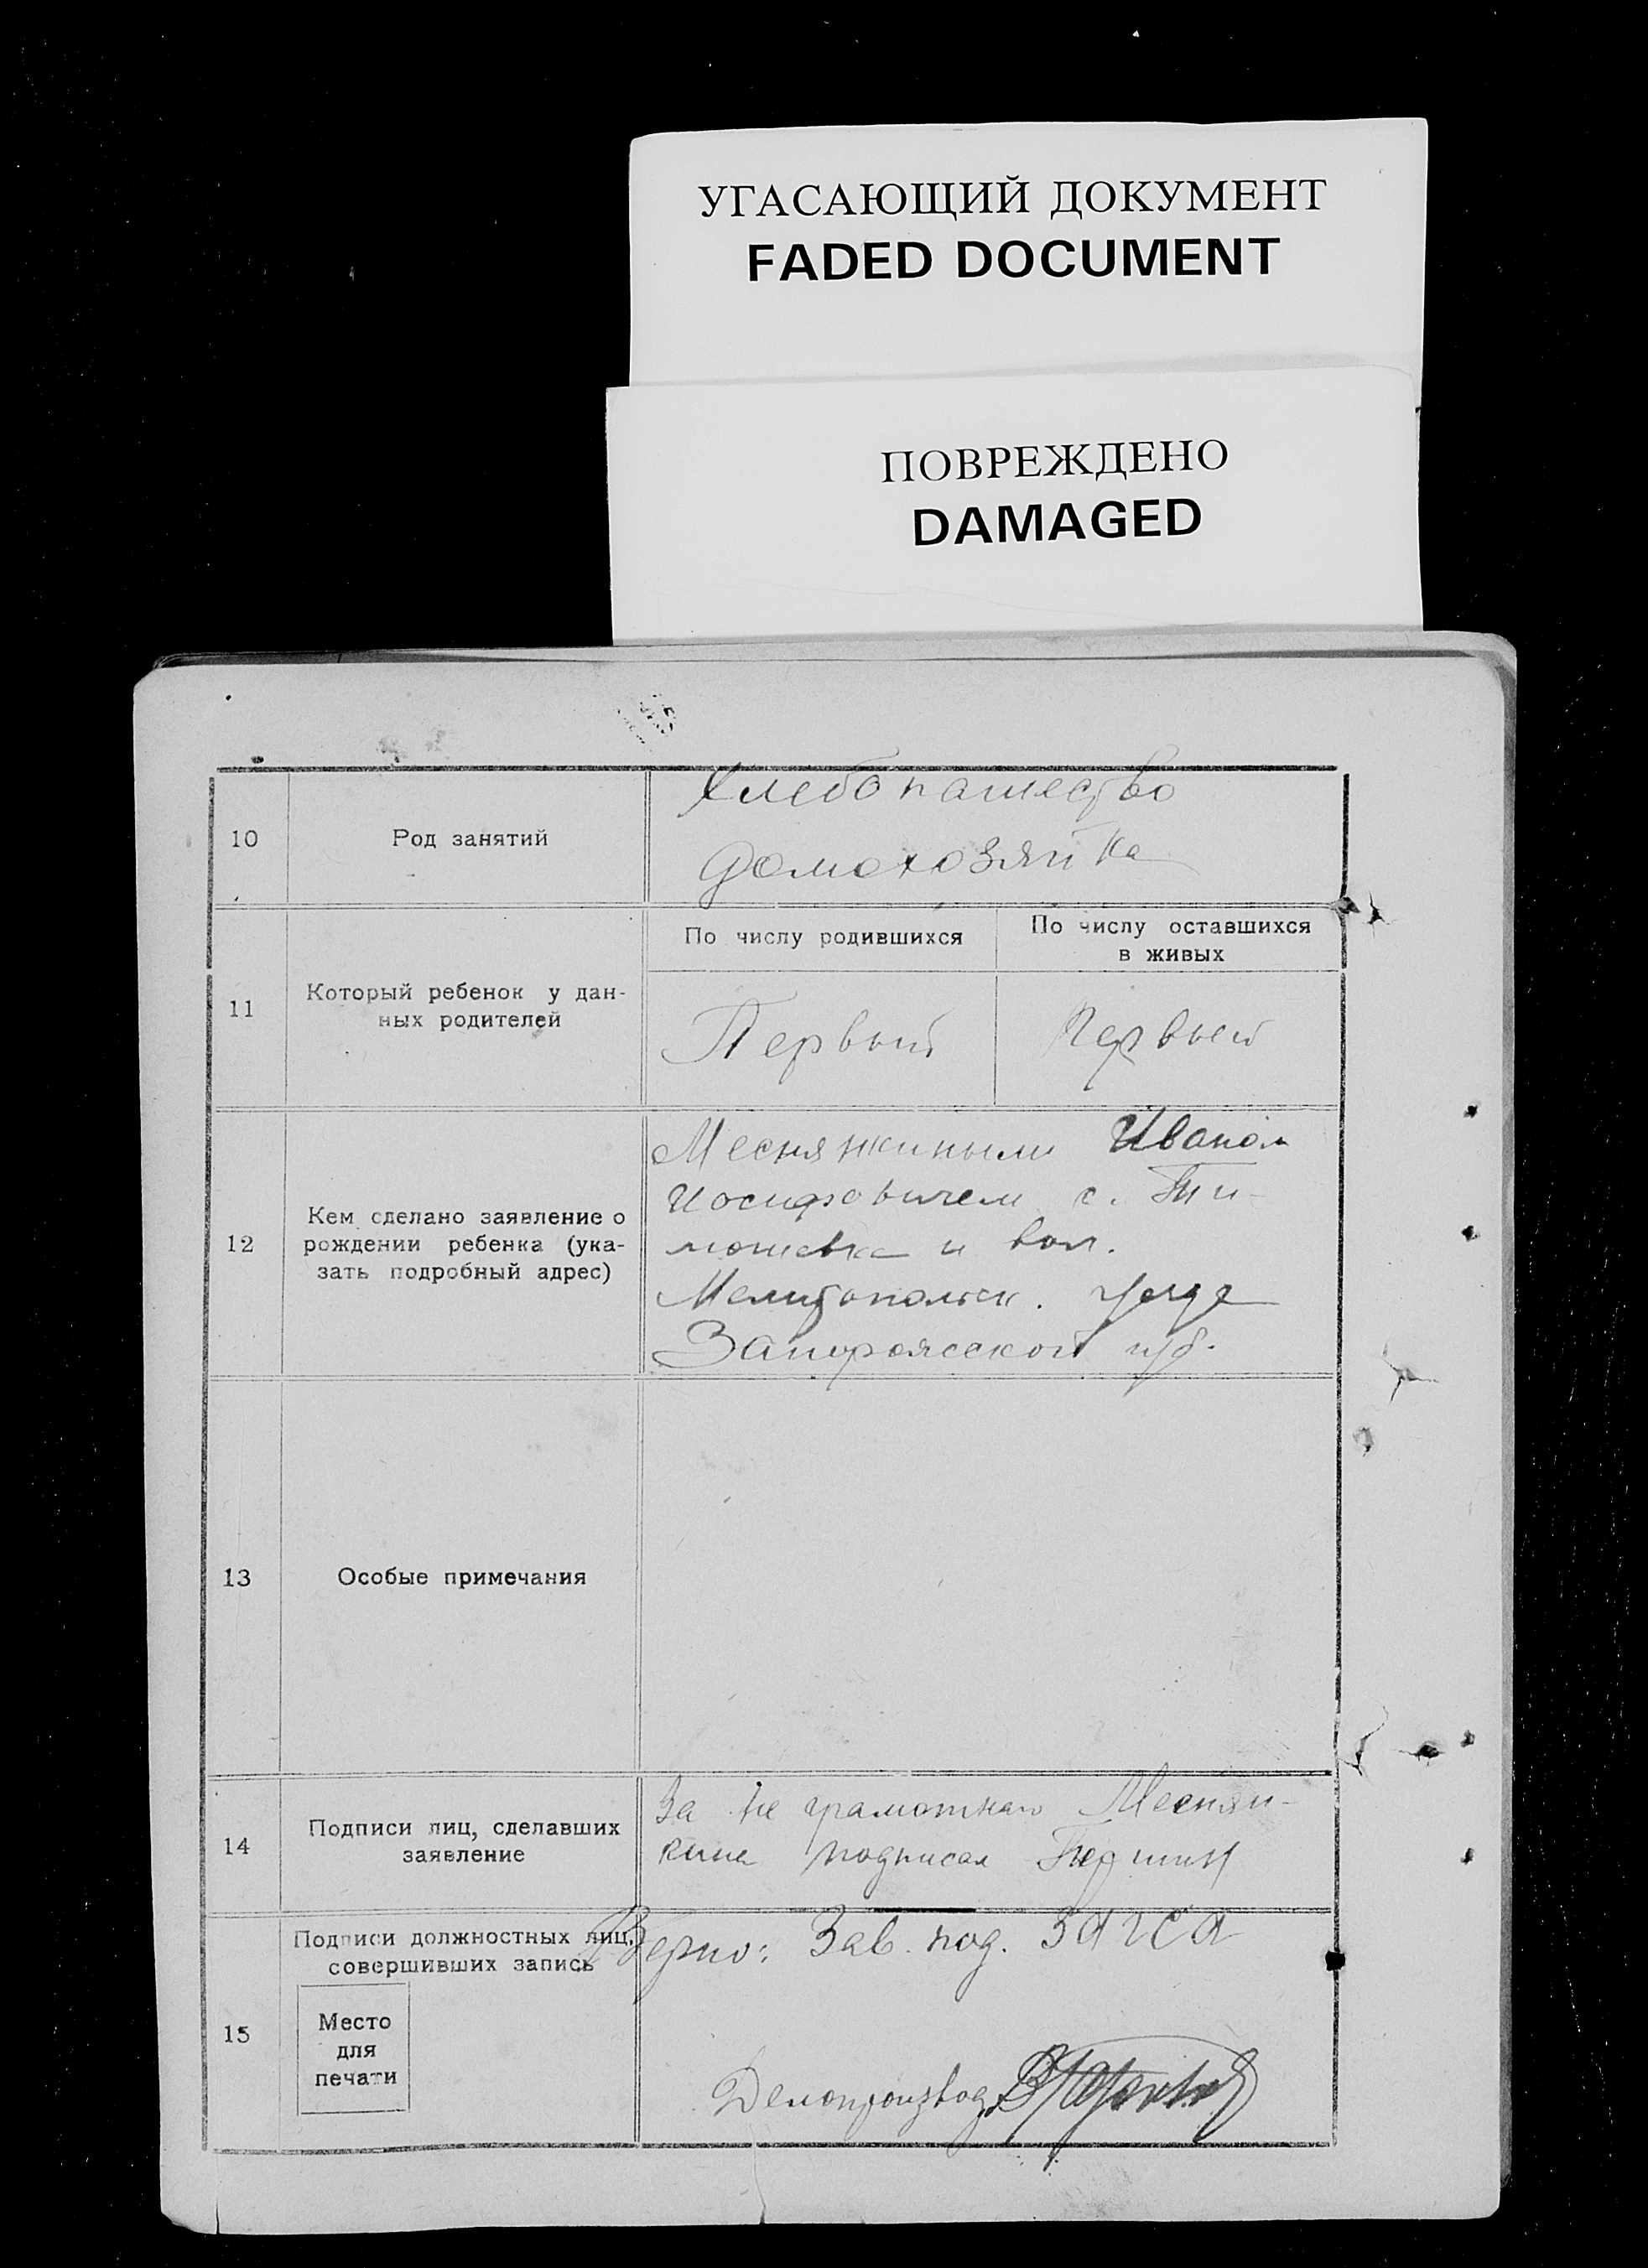 УГАСАЮЩИЙ ДОКУМЕНТ
FADED DOCUMENT
ПОВРЕЖДЕНО
DAMAGED
10
Род занятий
Хлебопашество
Домохозяйка
11
Который ребенок у дан-
ных родителей
По числу родившихся
По числу оставшихся
в живых
Первый
Первый
12
Кем сделано заявление о
рождении ребенка (ука-
зать подробный адрес)
Месняжиными Иваном
Иосифовичем с. Ти-
мошевка и вол.
Мелитопольск. уезда
Запорожской губ.
13
Особые примечания
14
Подписи лиц, сделавших
заявление
За не грамотнаго Меснян-
кина подписал
15
Подписи должностных лиц,
совершивших запись
Место
для
печати
Верно: Зав. под. Загса
Делопроизвод.